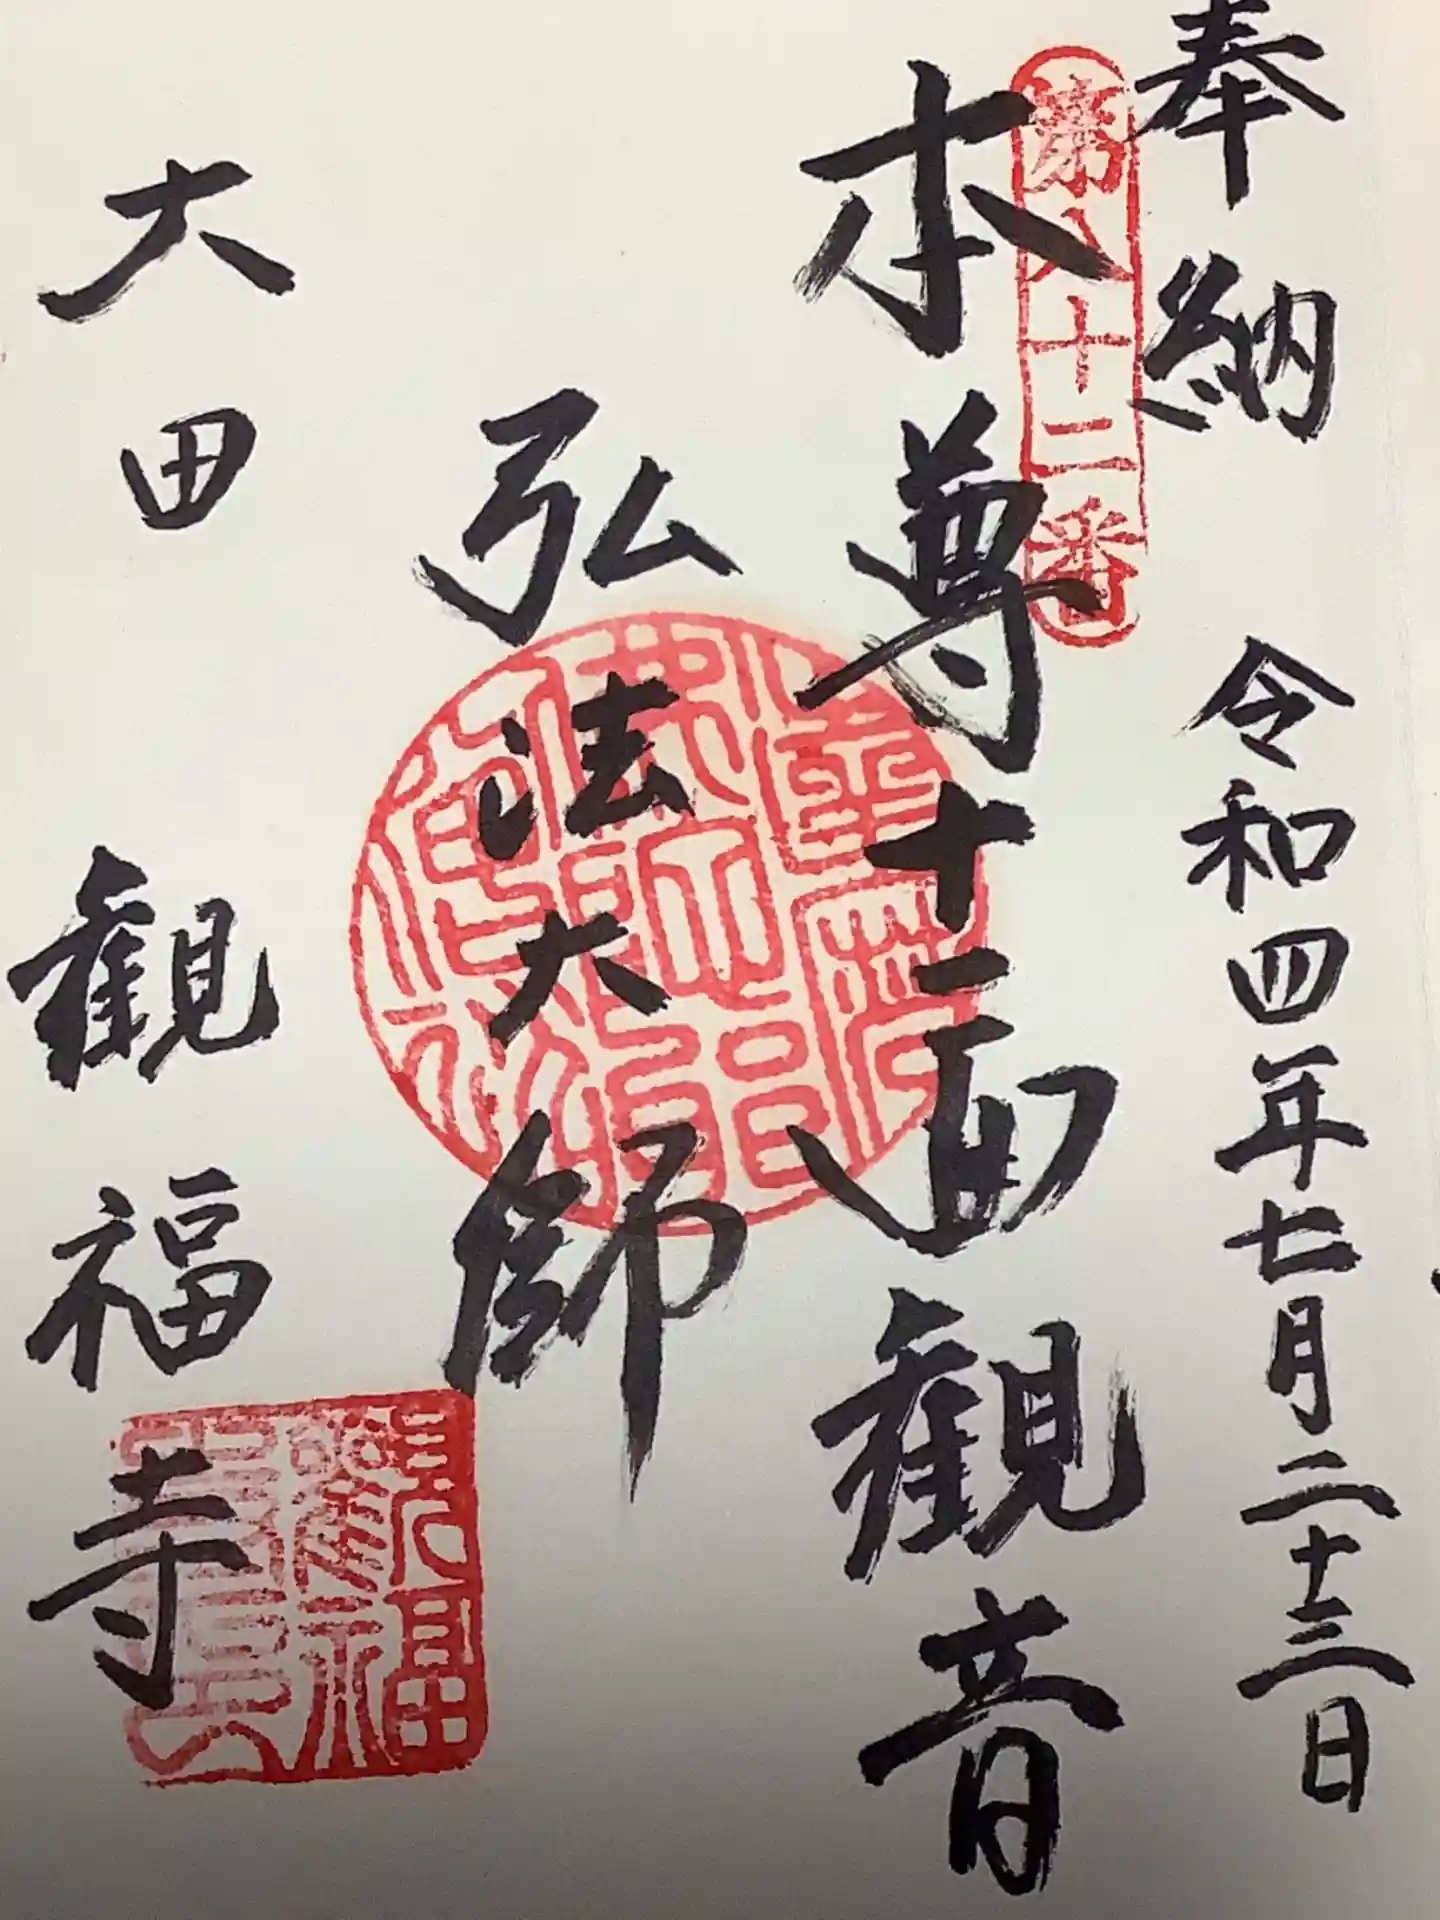 奉納 令和四年七月二十三日
第八十二番
本尊十一面観音
弘法大師
大田 観福寺